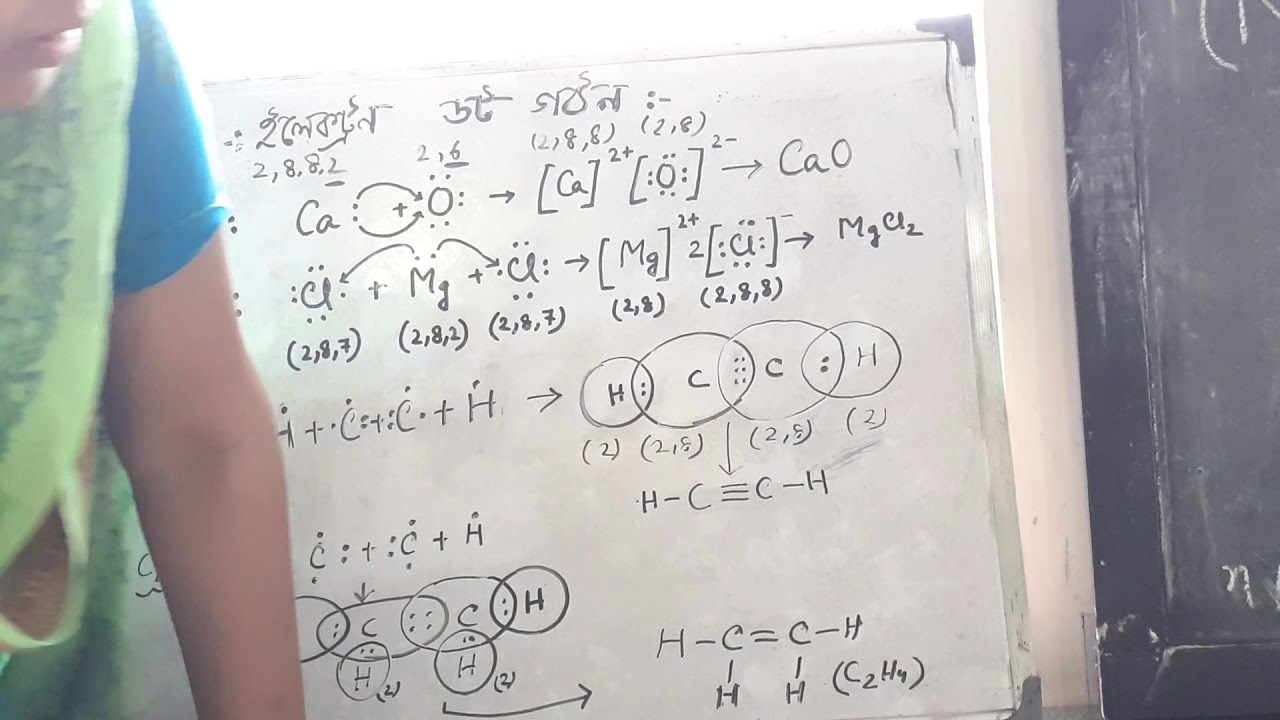 ইলেকট্রন ডট গঠন :-
2,8,8,2 2,6 (2,8,8) (2,8)
Ca + O → [Ca]²⁺ [:Ö:]²⁻ → CaO
:Cl· + Mg + ·Cl: → [Mg]²⁺ 2[:Cl:]⁻ → MgCl₂
(2,8,7) (2,8,2) (2,8,7) (2,8) (2,8,8)
+ ·C: + :C· + H → H : C ⫶ C : H
(2) (2,8) (2,8) (2)
H-C≡C-H
C : + : C + H
C :: C : H
H (2) H (2)
H-C=C-H
H H (C₂H₄)